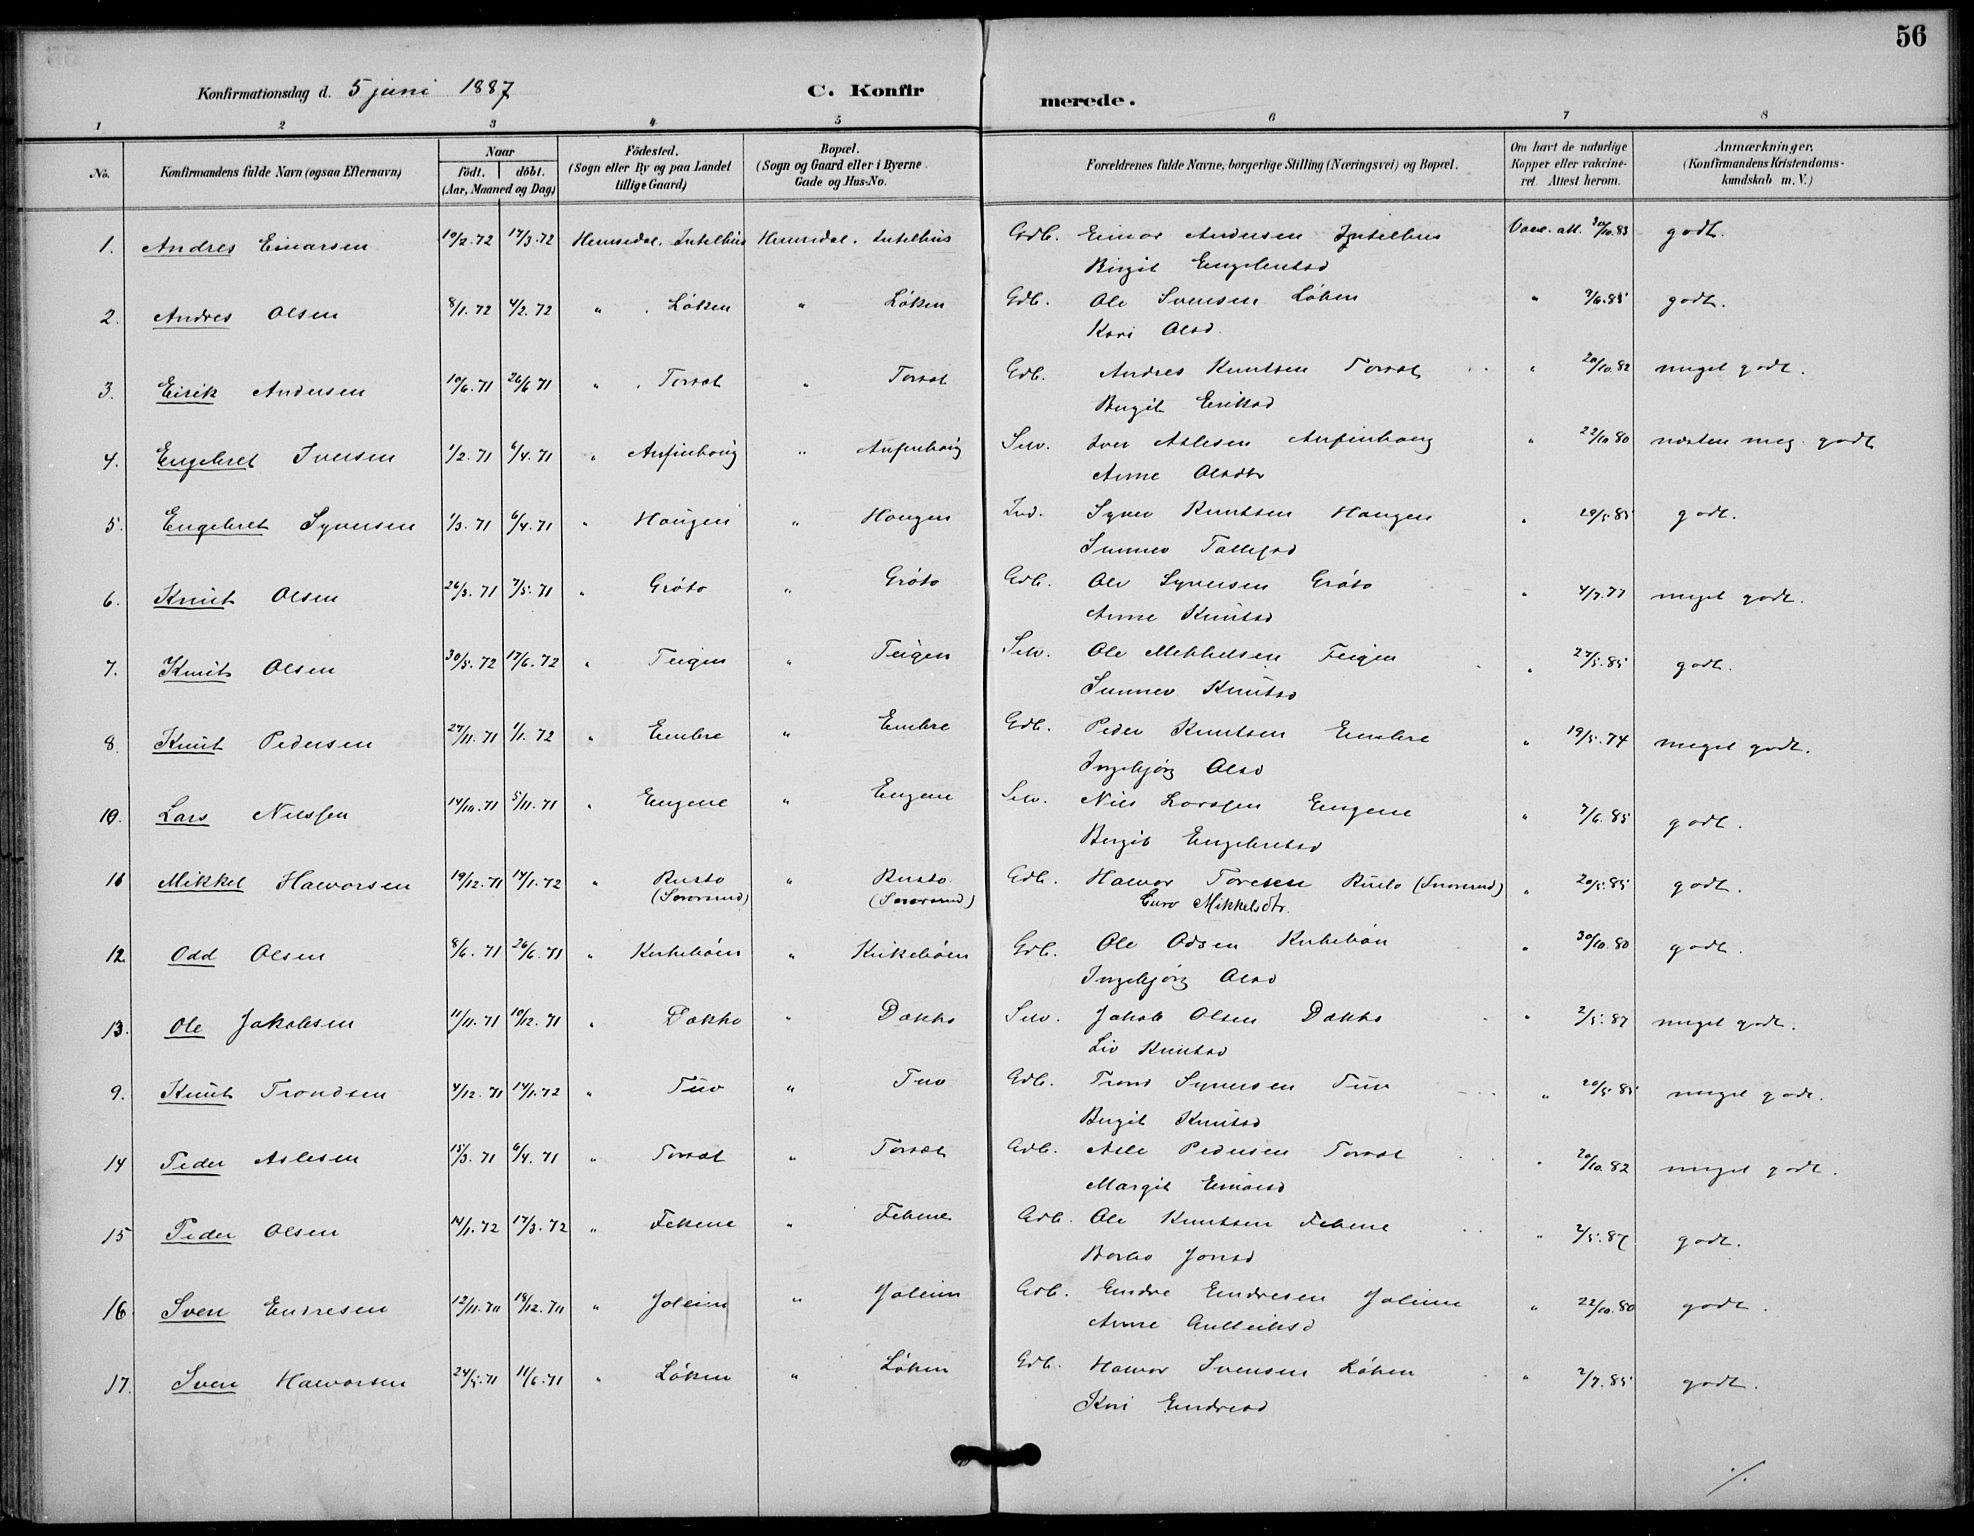 56
Konfirmationsdag d. 5 juni 1887
C. Konfirmerede.
1 2 3 4 5 6 7 8
No. Konfirmandens fulde Navn (ogsaa Efternavn) Naar födt. döbt. (Aar, Maaned og Dag) Födested. (Sogn eller By og paa Landet tillige Gaard) Bopæl. (Sogn og Gaard eller i Byerne Gade og Hus-No. Forældrenes fulde Navne, borgerlige Stilling (Næringsvei) og Bopæl. Om havt de naturlige Kopper eller vakcineret. Attest herom. Anmærkninger. (Konfirmandens Kristendomskundskab m. V.)
1. Andres Einarsen 10/2.72 17/3.72 Hemsedal. Intelhus Hemsedal. Intelhus Gdb. Einar Andersen Intelhus Vacc. att. 30/10.83 godt.
Birgit Engebretsd
2. Andres Olsen 8/1.72 4/2.72 " Løken " Løken Gdb. Ole Svensen Løken " 7/6.85 godt.
Kari Olsd.
3. Eirik Andersen 10/6.71 26/6 71 " Torset " Torset Gdb. Andres Knutsen Torset " 20/10.82 meget godt.
Birgit Eriksd
4. Engebret Iversen 1/2.71 6/4.71 " Anfinhoug " Anfinhoug Selv. Iver Aslesen Anfinhoug " 22/10 80 næsten meg. godt
Anne Olsdtr
5. Engebret Syversen 1/3.71 6/4.71 " Hougen " Hougen Ind. Syver Knutsen Haugen " 29/5.85 godt.
Sunnev Tollefsd
6. Knut Olsen 26/3.71 7/5.71 " Grøto " Grøto Gdb. Ole Syversen Grøto " 4/7.77 meget godt.
Anne Knutsd
7. Knut Olsen 30/5.72 17/6.72 " Teigen " Teigen Selv. Ole Mekkelsen Teigen " 27/5.85 godt.
Sunnev Knutsd
8. Knut Pedersen 27/11.71 1/1.72 " Embre " Embre Gdb. Peder Knutsen Embre " 19/5.74 meget godt.
Ingebjørg Olsd
10. Lars Nilssen 14/10.71 5/11.71 " Engene " Engene Selv. Nils Larssen Engene " 7/6.85 godt.
Birgit Engebretsd
11 Mikkel Halvorsen 19/12.71 14/1.72 " Rusto " Rusto Gdb. Halvor Toresen Rusto " 20/5.85 godt.
Guro Mikkelsdtr.
12 Odd Olsen 8/6.71 26/6.71 " Kirkebøen " Kirkebøen Gdb. Ole Odsen Kirkebøn " 30/10.80 godt.
Ingebjørg Olsd
13. Ole Jakobsen 11/11.71 10/12.71 " Dokko " Dokko Selv. Jakob Olsen Dokko " 2/5.87 meget godt.
Liv Knutsd
9. Knut Trondsen 4/12.71 14/1.72 " Tuv " Tuv Gdb. Trond Syversen Tuv " 20/5 85 meget godt.
Birgit Knutsd
14 Peder Aslesen 15/3.71 6/4.71 " Torset " Torset Gdb. Asle Pedersen Torset " 20/10.82 meget godt.
Margit Einarsd
15 Peder Olsen 14/1.72 17/3.72 " Fekene " Fekene Gdb. Ole Knutsen Fekene " 2/5.87 godt.
Barbo Jonsd
16 Sven Endresen 12/11.71 18/12.71 " Joleim " Joleim Gdb. Endre Endresen Joleim " 22/10.80 godt.
Anne Gulleiksd
17. Sven Halvorsen 24/5.71 11/6.71 " Løken " Løken Gdb. Halvor Svensen Løken " 2/7.85 godt.
Kari Endresd
./.